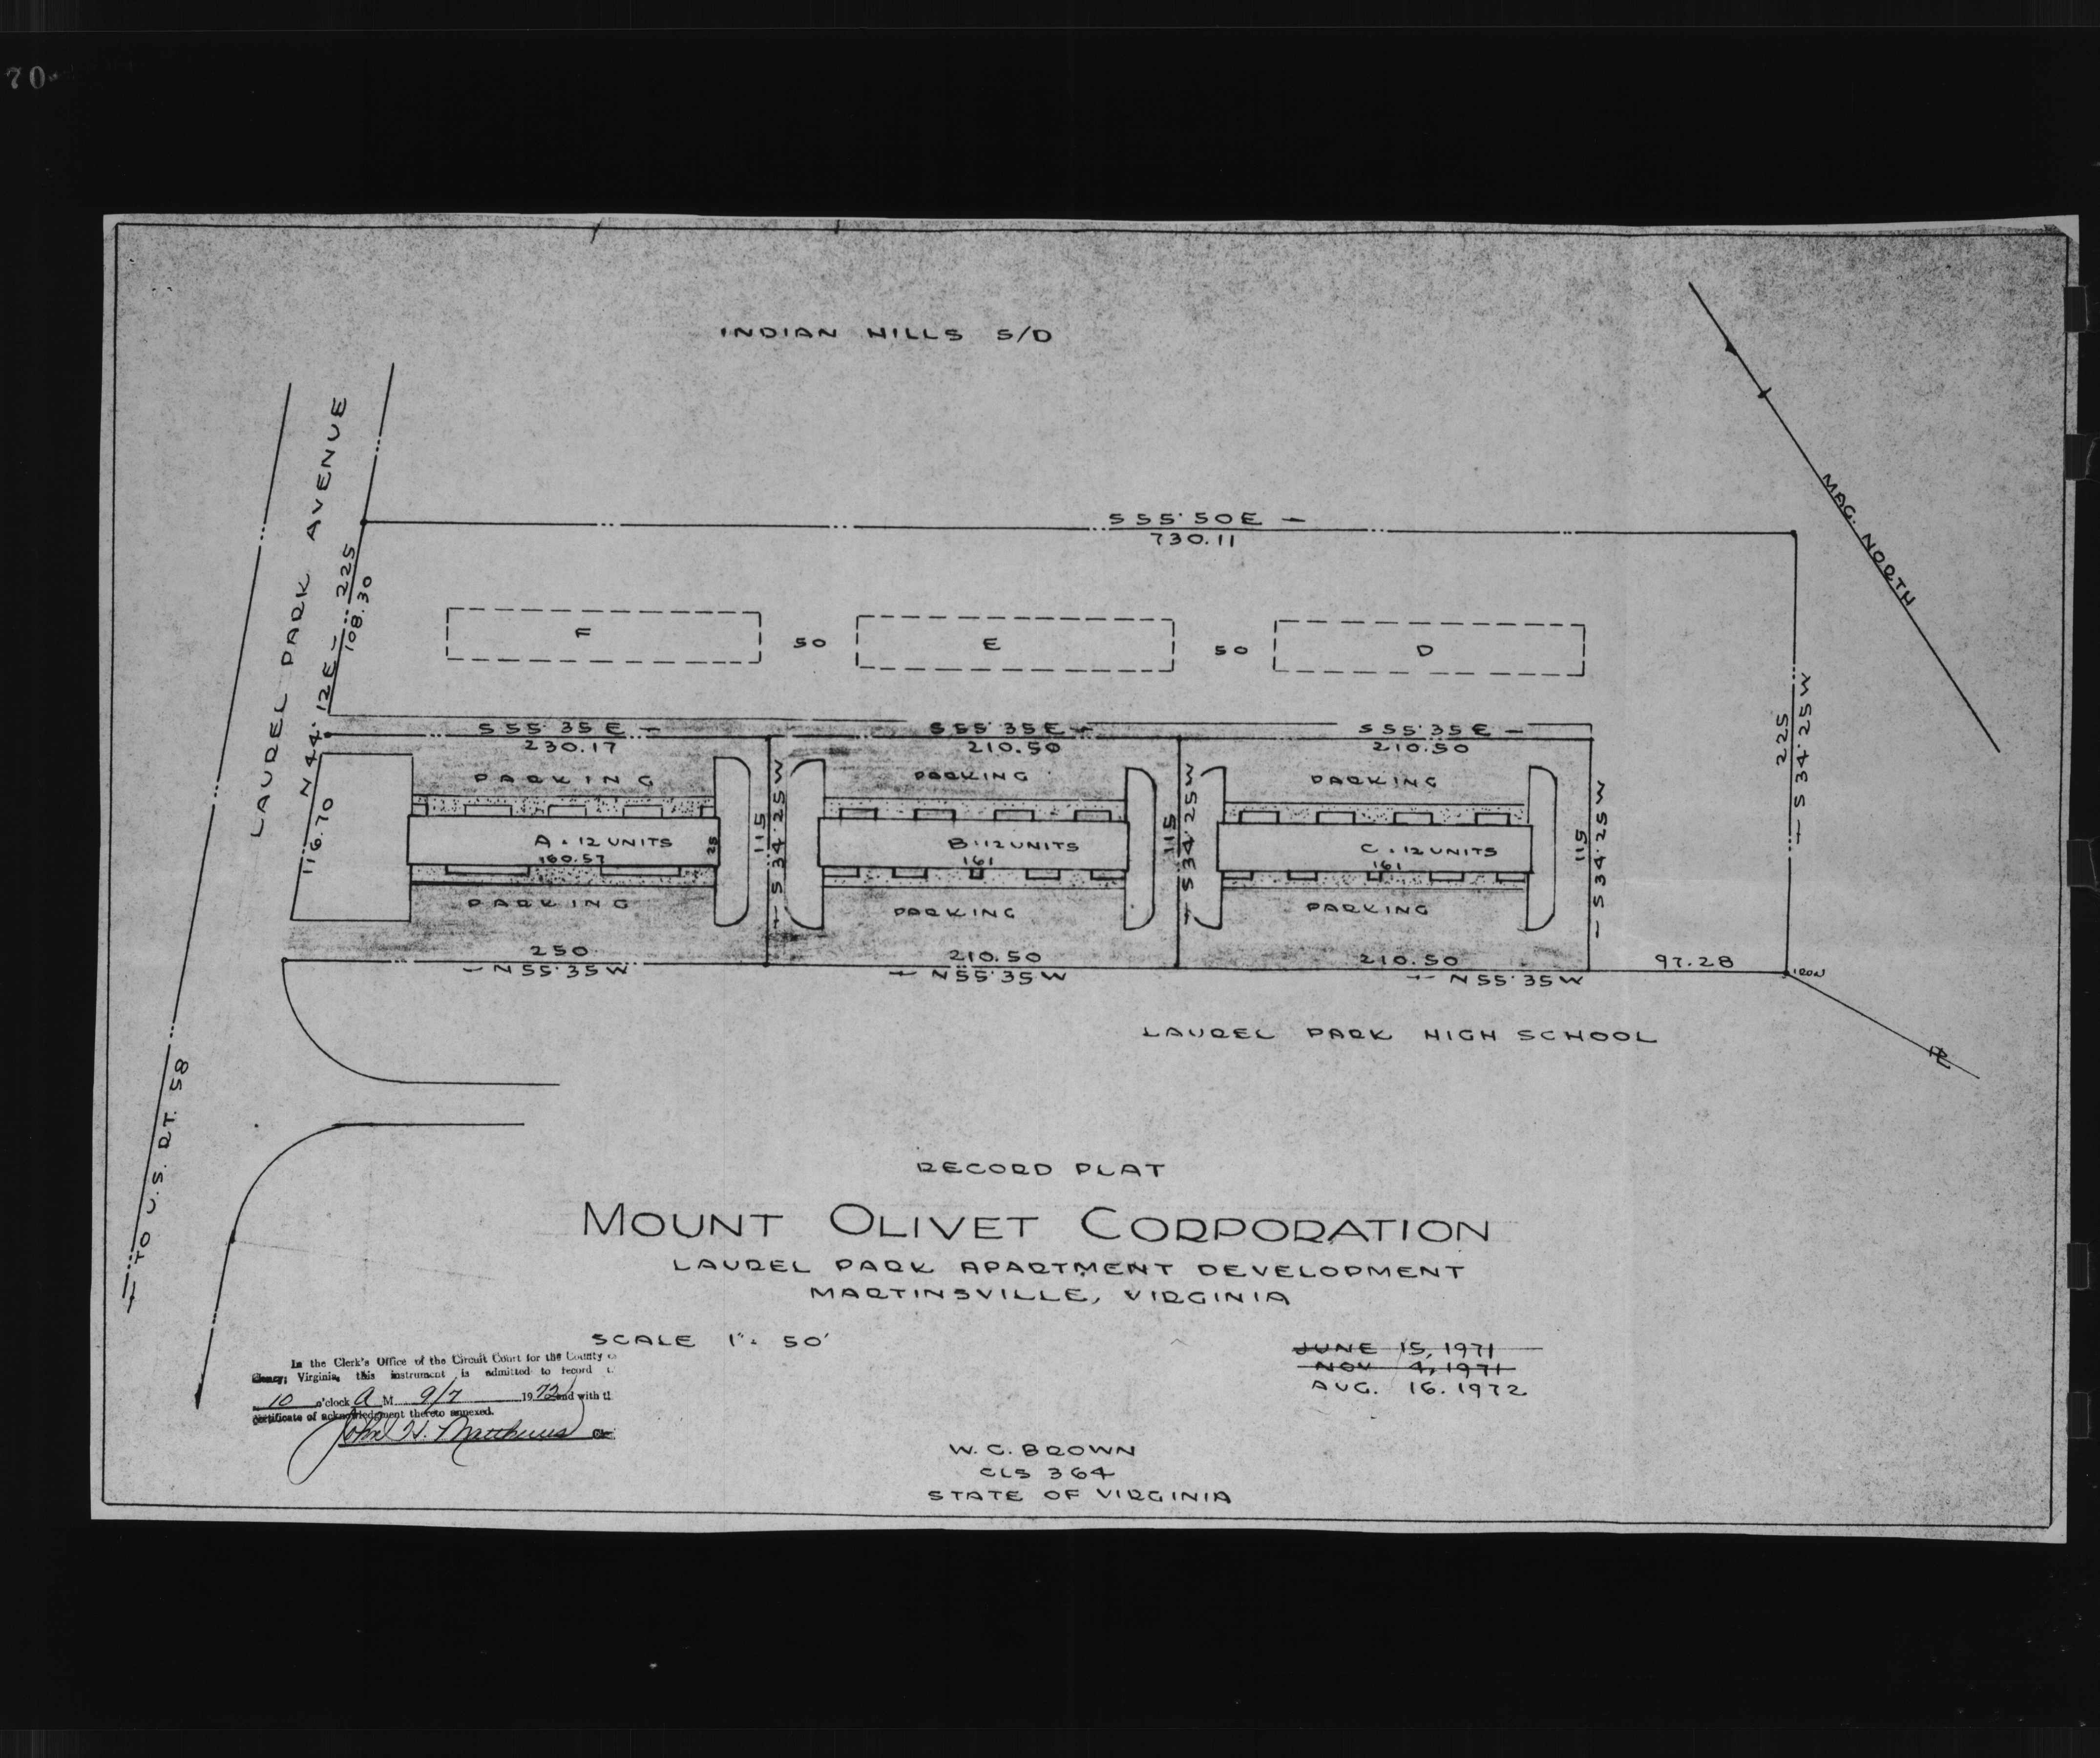 70
INDIAN HILLS S/D
LAUREL PARK AVENUE
N 44° 12 E — 225
108.30
116.70
S 55° 50 E —
730.11
MAG. NORTH
F
50
E
50
D
225
S 34° 25 W
S 55° 35 E —
230.17
S 55° 35 E —
210.50
S 55° 35 E —
210.50
PARKING
PARKING
PARKING
A - 12 UNITS
160.57
25
B - 12 UNITS
161
C - 12 UNITS
161
115
S 34° 25 W
115
S 34° 25 W
115
S 34° 25 W
PARKING
PARKING
PARKING
250
N 55° 35 W
210.50
N 55° 35 W
210.50
N 55° 35 W
97.28
IRON
LAUREL PARK HIGH SCHOOL
TO U.S. RT. 58
RECORD PLAT
MOUNT OLIVET CORPORATION
LAUREL PARK APARTMENT DEVELOPMENT
MARTINSVILLE, VIRGINIA
SCALE 1" = 50'
JUNE 15, 1971
NOV 4, 1971
AUG. 16. 1972
In the Clerk's Office of the Circuit Court for the County
Henry; Virginia, this instrument is admitted to record
10 o'clock A M 9/7 1972 and with
certificate of acknowledgment thereto annexed.
John H. Matthews
W. C. BROWN
CLS 364
STATE OF VIRGINIA